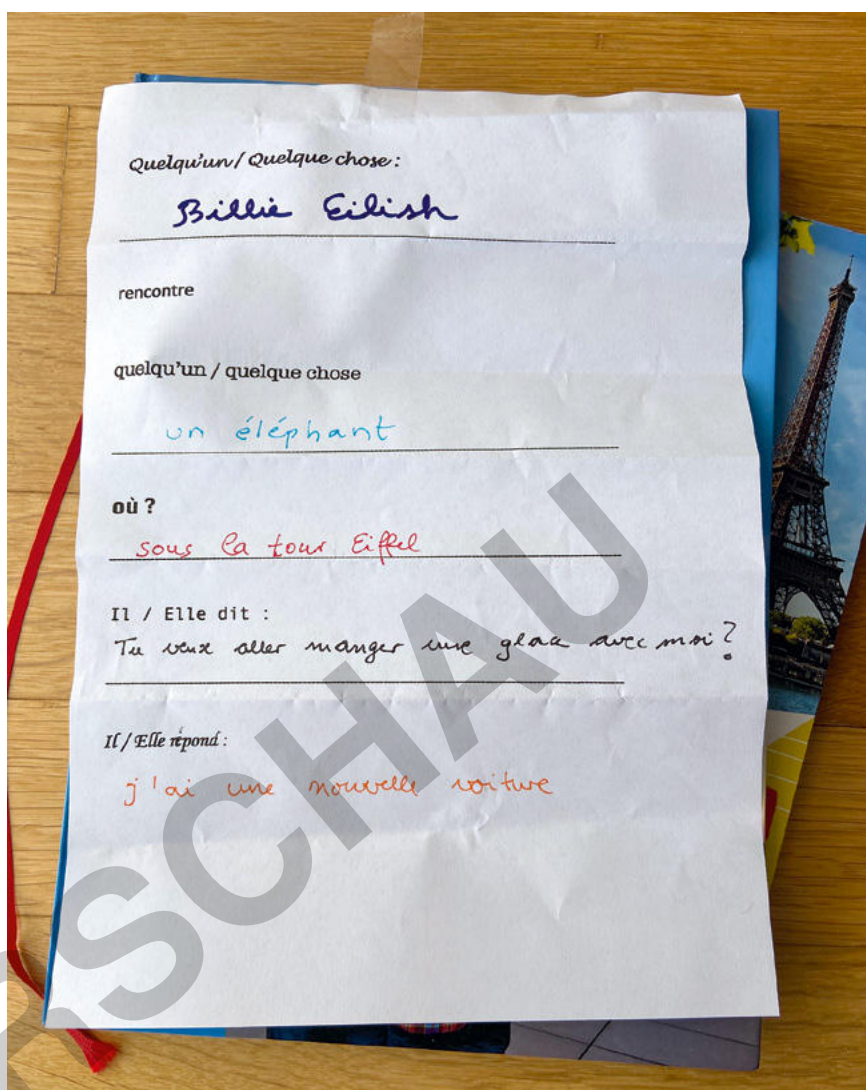 Quelqu'un / Quelque chose :
Billie Eilish
rencontre
quelqu'un / quelque chose
un éléphant
où ?
sous la tour Eiffel
Il / Elle dit :
Tu veux aller manger une glace avec moi ?
Il / Elle répond :
j'ai une nouvelle voiture
RSCHAU